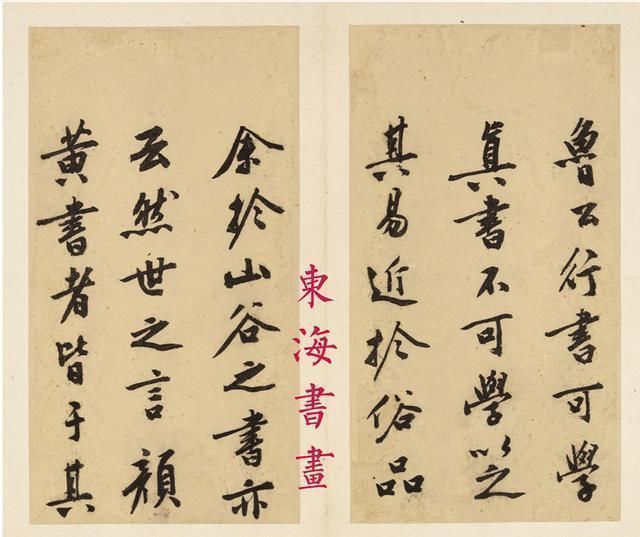 魯公行書可學
眞書不可學以
其易近於俗品
余於山谷之書亦
云然世之言顏
黃書者皆于其
東海書畫